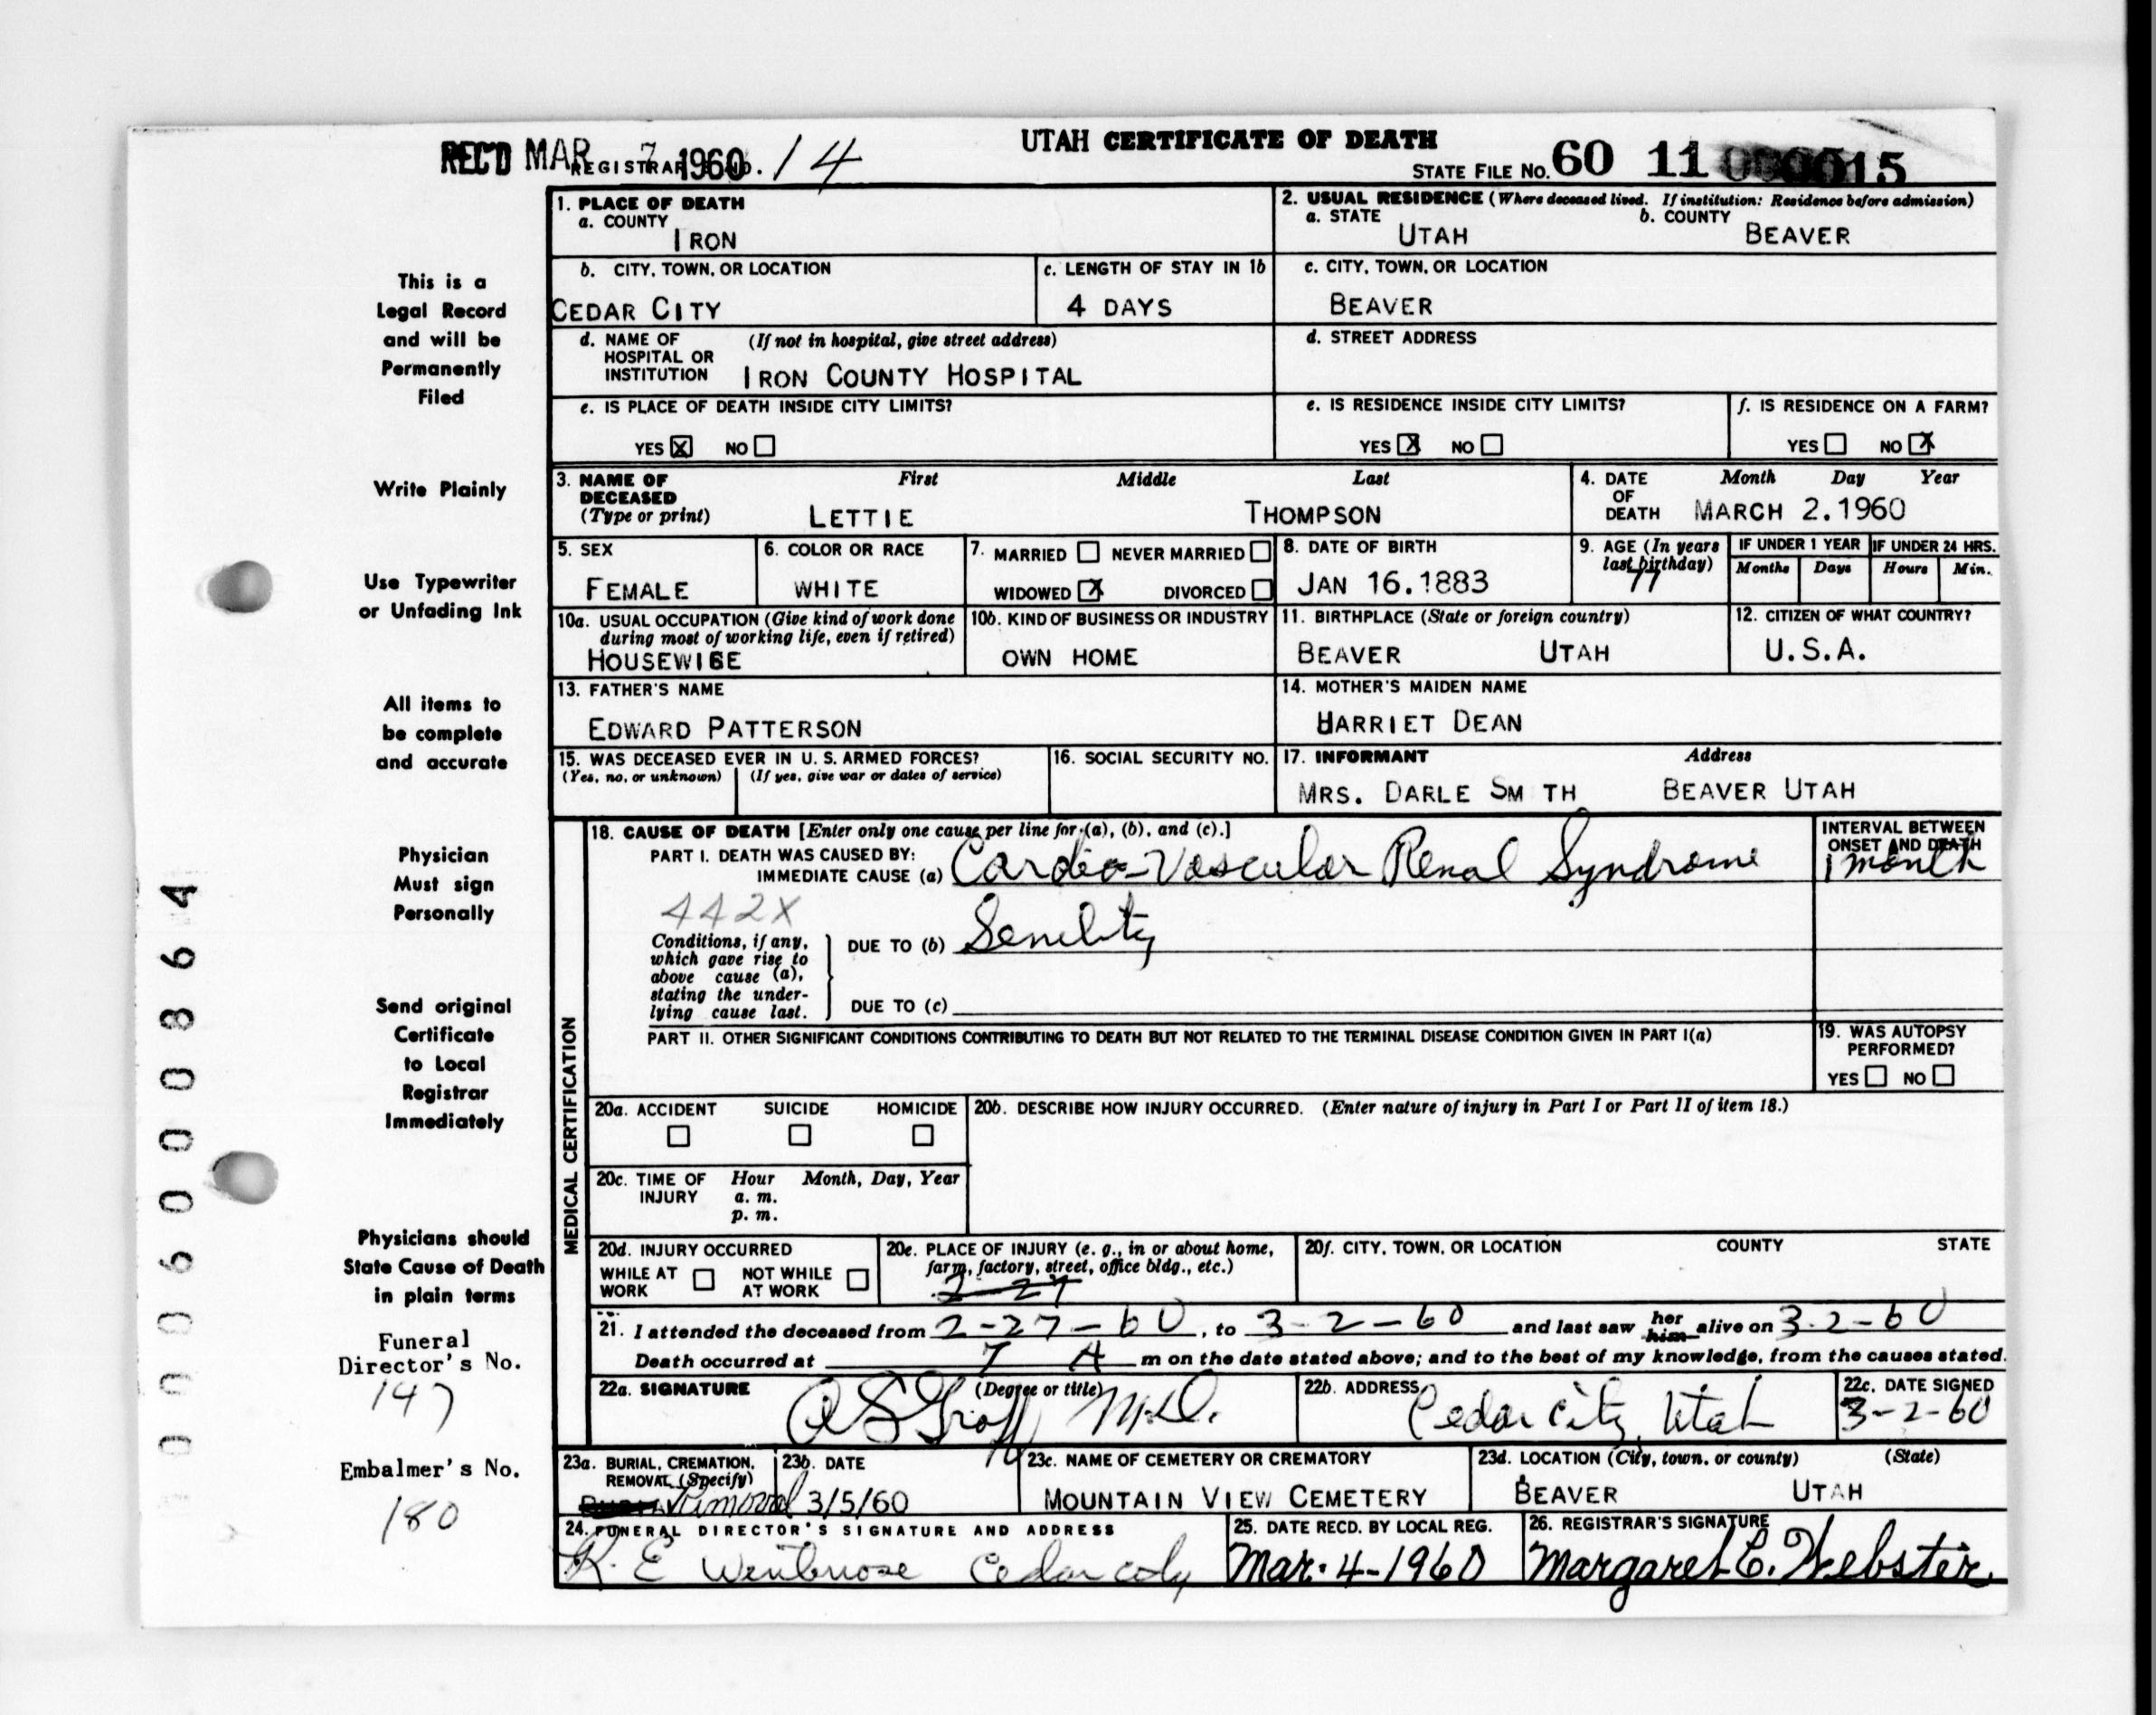 UTAH CERTIFICATE OF DEATH
REC'D MAR 7 1960 REGISTRAR'S NO. 14
STATE FILE No. 60 11 0015
1. PLACE OF DEATH
a. COUNTY
IRON
2. USUAL RESIDENCE (Where deceased lived. If institution: Residence before admission)
a. STATE b. COUNTY
UTAH BEAVER
b. CITY, TOWN, OR LOCATION
CEDAR CITY
c. LENGTH OF STAY IN 1b
4 DAYS
c. CITY, TOWN, OR LOCATION
BEAVER
d. NAME OF HOSPITAL OR INSTITUTION (If not in hospital, give street address)
IRON COUNTY HOSPITAL
d. STREET ADDRESS
e. IS PLACE OF DEATH INSIDE CITY LIMITS?
YES X NO
e. IS RESIDENCE INSIDE CITY LIMITS?
YES X NO
f. IS RESIDENCE ON A FARM?
YES NO X
3. NAME OF DECEASED (Type or print)
First Middle Last
LETTIE THOMPSON
4. DATE OF DEATH
Month Day Year
MARCH 2.1960
5. SEX
FEMALE
6. COLOR OR RACE
WHITE
7. MARRIED NEVER MARRIED
WIDOWED X DIVORCED
8. DATE OF BIRTH
JAN 16.1883
9. AGE (In years last birthday)
77
IF UNDER 1 YEAR
Months Days
IF UNDER 24 HRS.
Hours Min.
10a. USUAL OCCUPATION (Give kind of work done during most of working life, even if retired)
10b. KIND OF BUSINESS OR INDUSTRY
OWN HOME
11. BIRTHPLACE (State or foreign country)
BEAVER UTAH
12. CITIZEN OF WHAT COUNTRY?
U.S.A.
13. FATHER'S NAME
EDWARD PATTERSON
14. MOTHER'S MAIDEN NAME
HARRIET DEAN
15. WAS DECEASED EVER IN U. S. ARMED FORCES?
(Yes, no, or unknown) (If yes, give war or dates of service)
16. SOCIAL SECURITY NO.
17. INFORMANT Address
MRS. DARLE SM TH BEAVER UTAH
MEDICAL CERTIFICATION
18. CAUSE OF DEATH [Enter only one cause per line for (a), (b), and (c).]
PART I. DEATH WAS CAUSED BY:
IMMEDIATE CAUSE (a) Cardio-Vascular Renal Syndrome
INTERVAL BETWEEN ONSET AND DEATH
1 month
442X
Conditions, if any, which gave rise to above cause (a), stating the underlying cause last.
DUE TO (b) Senility
DUE TO (c)
PART II. OTHER SIGNIFICANT CONDITIONS CONTRIBUTING TO DEATH BUT NOT RELATED TO THE TERMINAL DISEASE CONDITION GIVEN IN PART I(a)
19. WAS AUTOPSY PERFORMED?
YES NO
20a. ACCIDENT SUICIDE HOMICIDE
20b. DESCRIBE HOW INJURY OCCURRED. (Enter nature of injury in Part I or Part II of item 18.)
20c. TIME OF INJURY Hour Month, Day, Year
a. m.
p. m.
20d. INJURY OCCURRED
WHILE AT WORK NOT WHILE AT WORK
20e. PLACE OF INJURY (e. g., in or about home, farm, factory, street, office bldg., etc.)
2-27
20f. CITY, TOWN, OR LOCATION COUNTY STATE
21. I attended the deceased from 2-27-60, to 3-2-60 and last saw her him alive on 3-2-60
Death occurred at 7 A m on the date stated above; and to the best of my knowledge, from the causes stated.
22a. SIGNATURE (Degree or title)
M.D.
22b. ADDRESS
Cedar City, Utah
22c. DATE SIGNED
3-2-60
23a. BURIAL, CREMATION, REMOVAL (Specify)
Removal
23b. DATE
3/5/60
23c. NAME OF CEMETERY OR CREMATORY
MOUNTAIN VIEW CEMETERY
23d. LOCATION (City, town, or county) (State)
BEAVER UTAH
24. FUNERAL DIRECTOR'S SIGNATURE AND ADDRESS
K. E
25. DATE RECD. BY LOCAL REG.
Mar. 4-1960
26. REGISTRAR'S SIGNATURE
Margaret C. Webster
This is a
Legal Record
and will be
Permanently
Filed
Write Plainly
Use Typewriter
or Unfading Ink
All items to
be complete
and accurate
Physician
Must sign
Personally
Send original
Certificate
to Local
Registrar
Immediately
Physicians should
State Cause of Death
in plain terms
Funeral
Director's No.
147
Embalmer's No.
180
0006000864